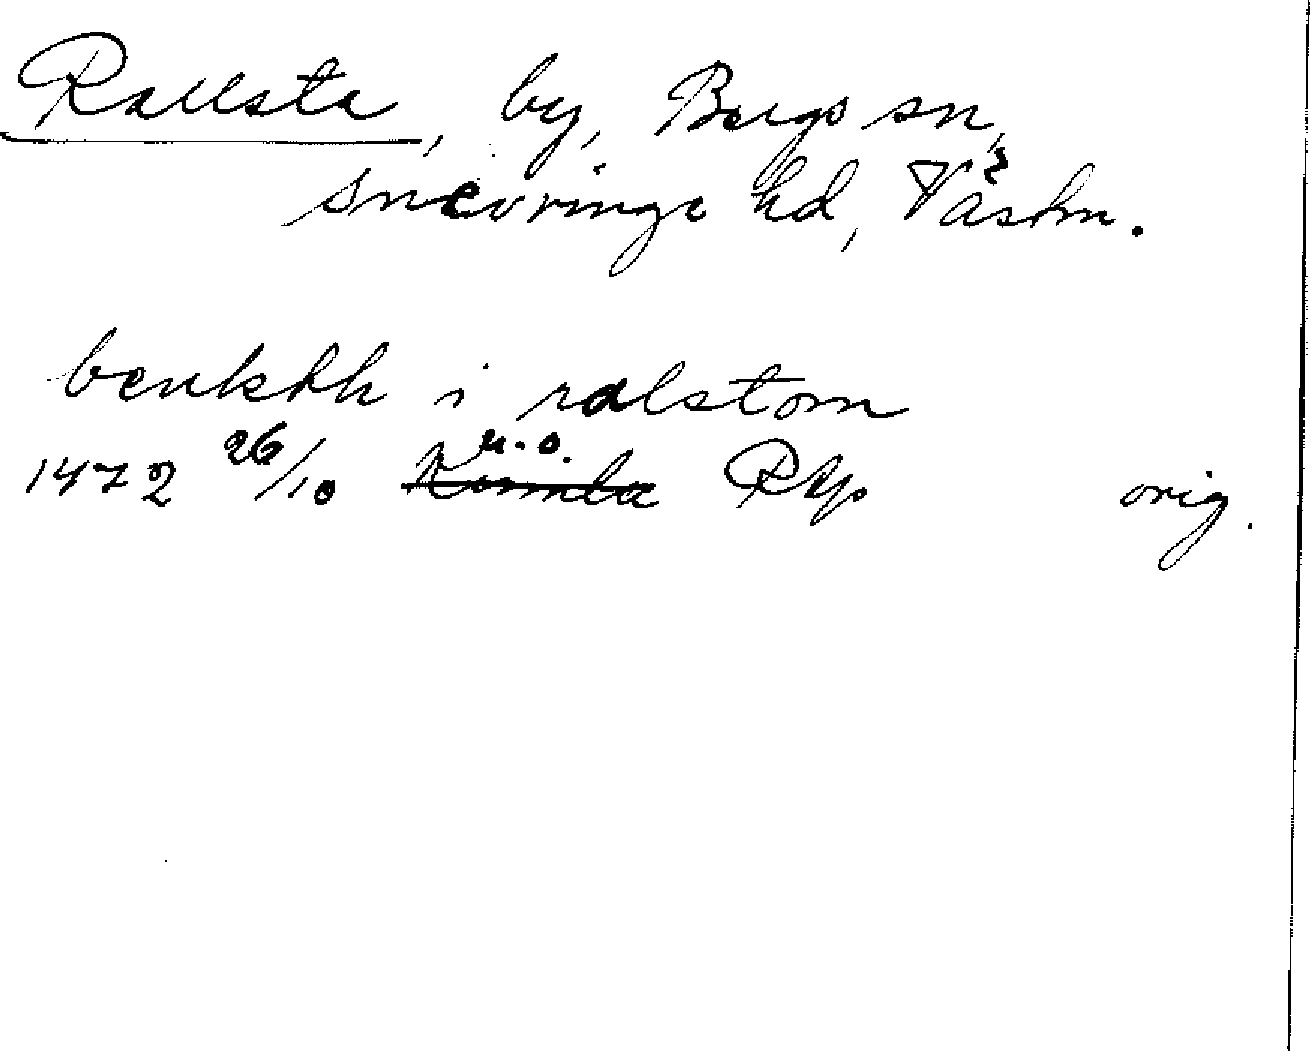 Rallsta, by, Bergs sn,
Snevringe hd, Västm.
benkth i ralstom
u.o.
1472 26/10 Kumla RAp orig.